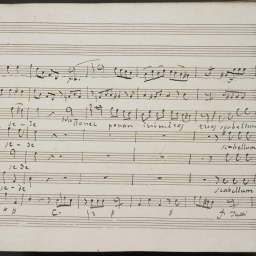 se-de Donec ponam inimicos tuos scabellum
se-de scabellum
se-de
se-de scabellum